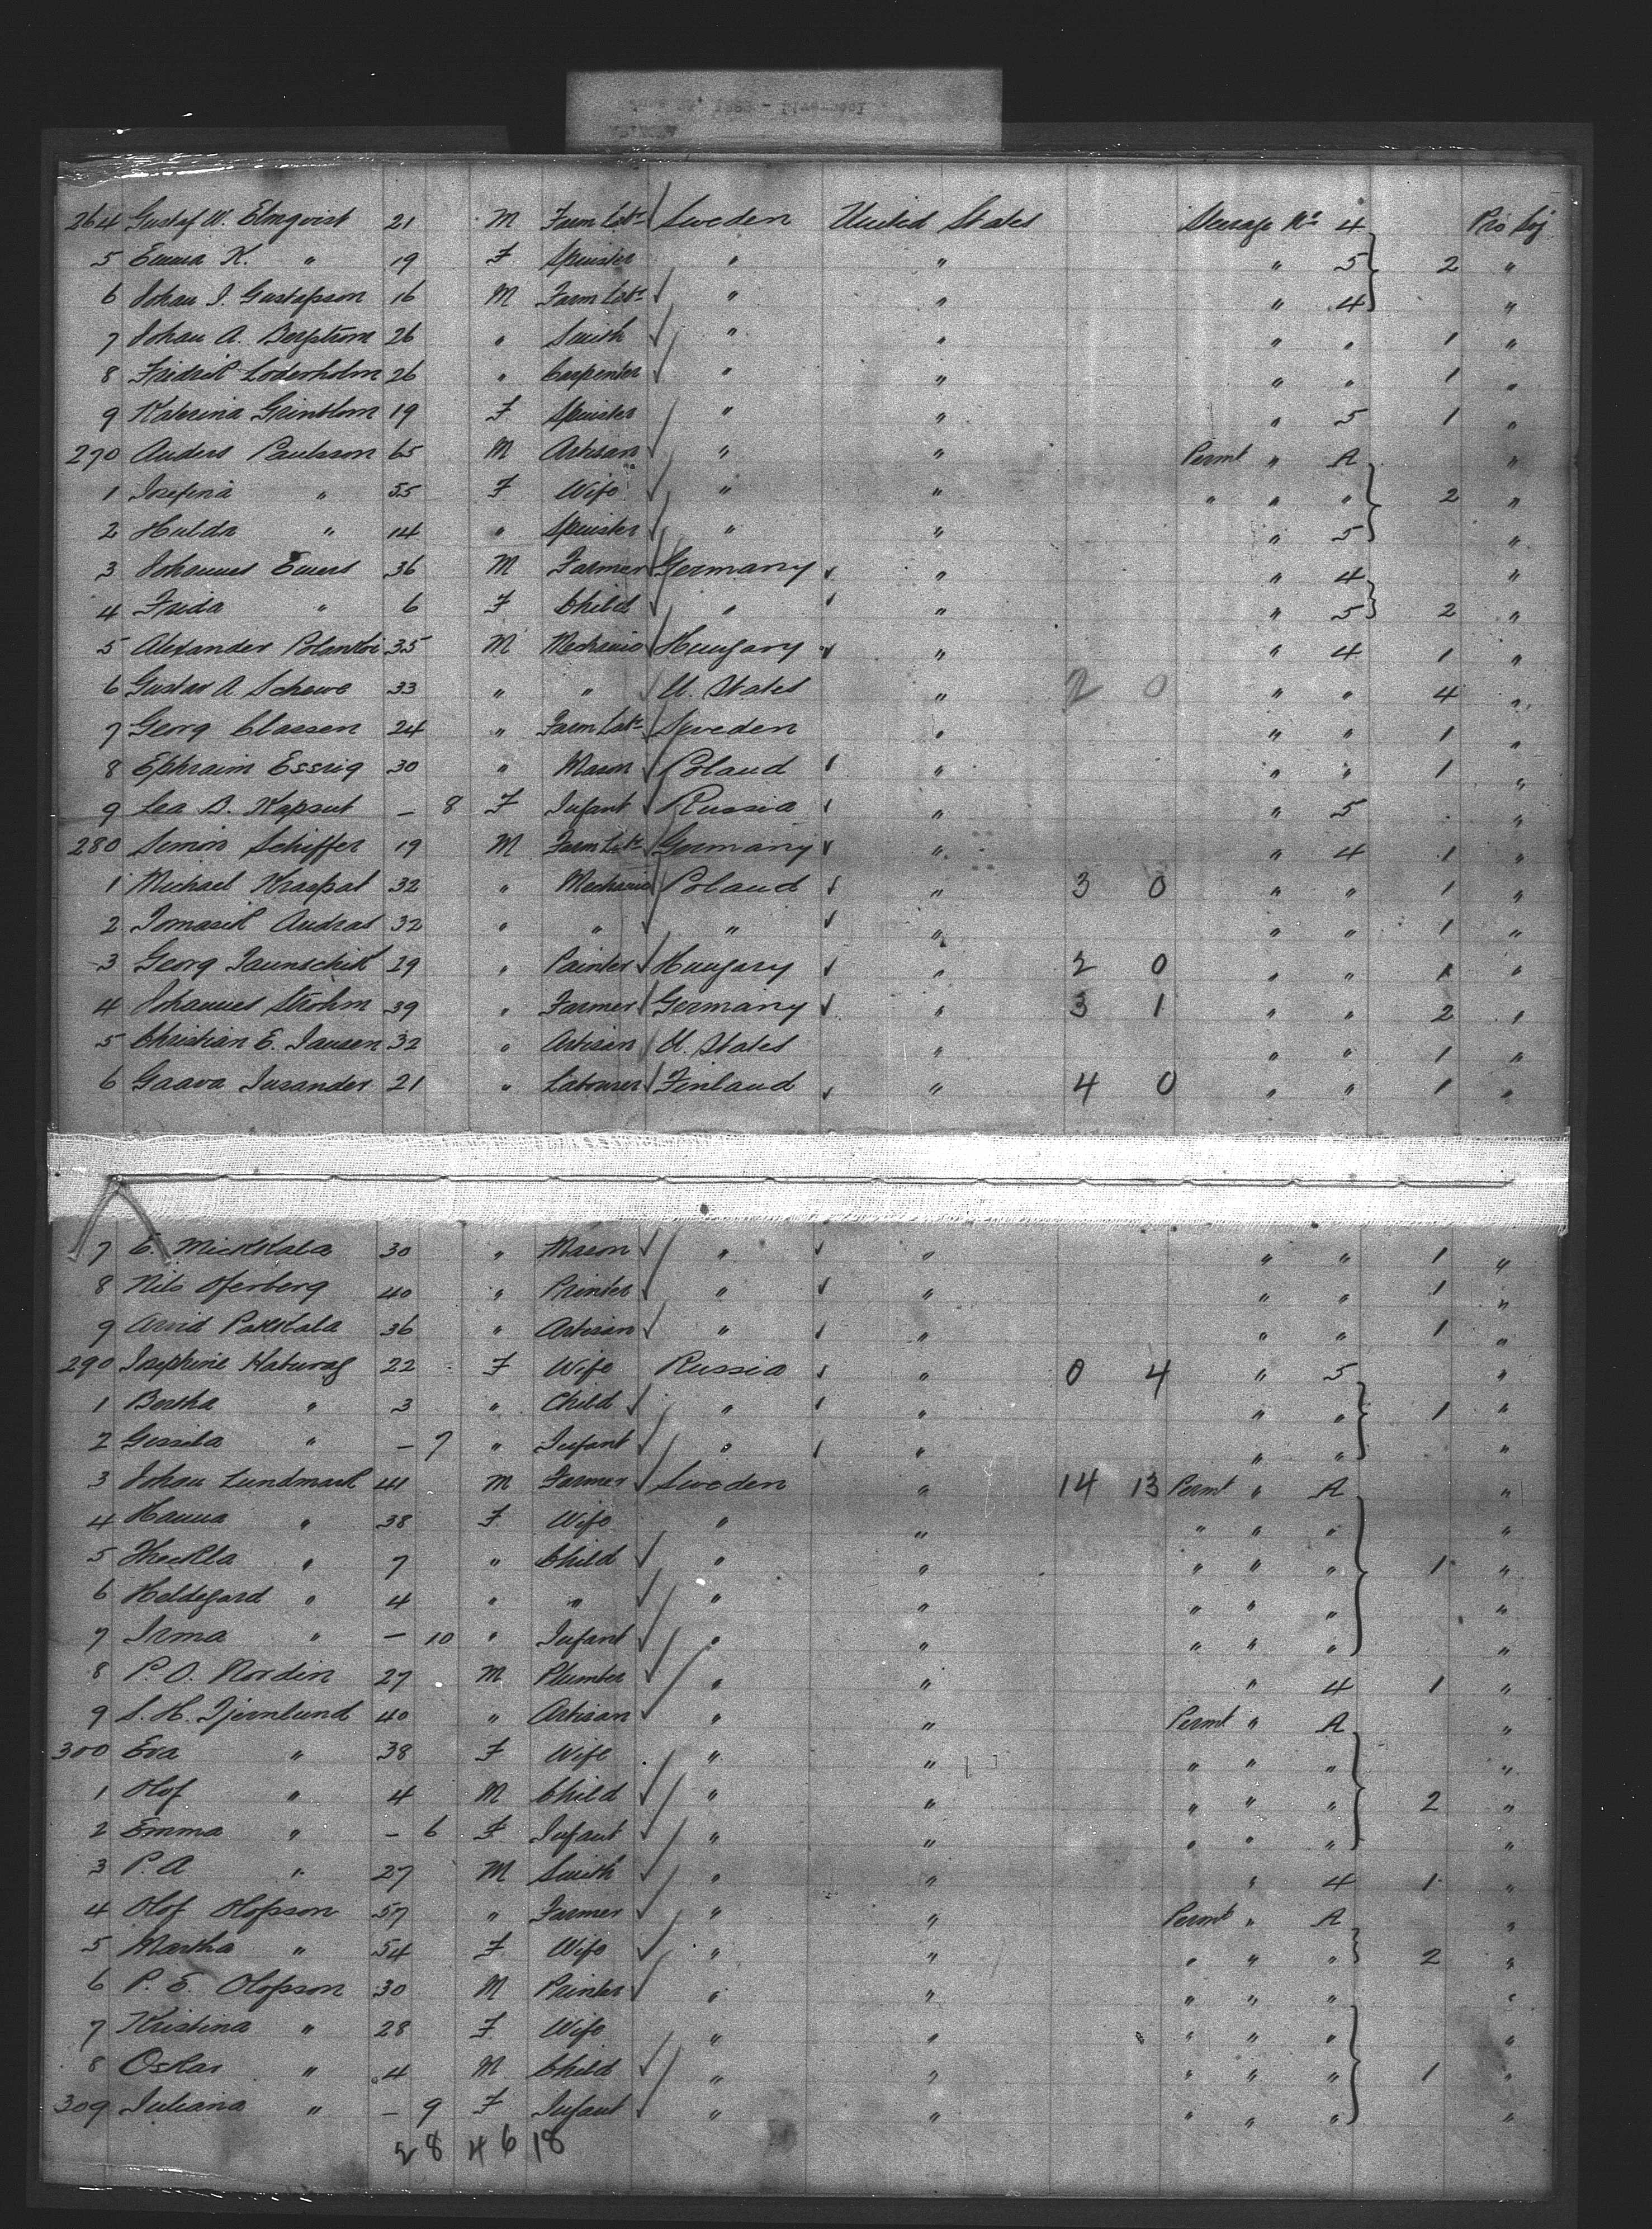 264 Gustaf W. Elmqvist 21 M Farm Labr Sweden United States Steerage No 4 Pro Soj
5 Emma K. " 19 F Spinster " " " 5 2 "
6 Johan I. Gustafsson 16 M Farm Labr " " " 4 "
7 Johan A. Bergstrom 26 " Smith " " " " 1 "
8 Fredrik Loderholm 26 " Carpenter " " " " 1 "
9 Katerina Grinblom 19 F Spinster " " " 5 1 "
270 Anders Paulsson 65 M Artisan " " Permt " A "
1 Josefina " 55 F Wife " " " " " 2 "
2 Hulda " 14 " Spinster " " " 5 "
3 Johannes Ewers 36 M Farmer Germany " " 4 "
4 Frida " 6 F Child " " " 5 2 "
5 Alexander Polankoi 35 M Mechanic Hungary " " 4 1 "
6 Gustav A Schewe 33 " " U. States " 2 0 " " 4 "
7 Georg Classen 24 " Farm Labr Sweden " " " 1 "
8 Ephraim Essrig 30 " Mason Poland " " " 1 "
9 Lea B. Kapsut – 8 F Infant Russia " " 5 "
280 Simon Schiffer 19 M Farm Labr Germany " " 4 1 "
1 Michael Kraspal 32 " Mechanic Poland " 3 0 " " 1 "
2 Tomasik Andras 32 " " " " " " 1 "
3 Georg Jaunschik 29 " Painter Hungary " 2 0 " " 1 "
4 Johannes Strohm 39 " Farmer Germany " 3 1 " " 2 "
5 Christian E. Jansen 32 " Artisan U. States " " " 1 "
6 Gaava Jusander 21 " Labourer Finland " 4 0 " " 1 "
7 C. Mickkala 30 " Mason " " " " 1 "
8 Nils Oferberg 40 " Printer " " " " 1 "
9 Arvid Pakkala 36 " Artisan " " " " 1 "
290 Josephine 22 F Wife Russia " 0 4 " 5 "
1 Bertha " 3 " Child " " " " 1 "
2 Gissela " – 7 " Infant " " " " "
3 Johan Lundmark 41 M Farmer Sweden " 14 13 Permt " A "
4 Hanna " 38 F Wife " " " " " "
5 Theckla " 7 " Child " " " " " 1 "
6 Heldegard " 4 " " " " " " " "
7 Irma " – 10 " Infant " " " " " "
8 P. O. Nordin 27 M Plumber " " " 4 1 "
9 S. H. Tjernlund 40 " Artisan " " Permt " A "
300 Eva " 38 F Wife " " " " " "
1 Olof " 4 M Child " " " " " 2 "
2 Emma " – 6 F Infant " " " " " "
3 P. A " 27 M Smith " " " 4 1 "
4 Olof Olofsson 57 " Farmer " " Permt " A "
5 Martha " 54 F Wife " " " " " 2 "
6 P. E. Olofsson 30 M Printer " " " " " "
7 Kristina " 28 F Wife " " " " " "
8 Oskar " 4 M Child " " " " " 1 "
309 Juliana " – 9 F Infant " " " " " "
28 4 6 18